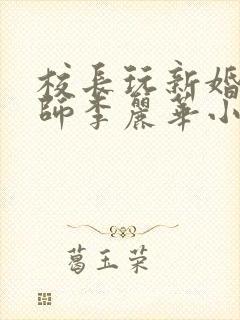 校長玩新婚
師李麗華小
葛玉荣